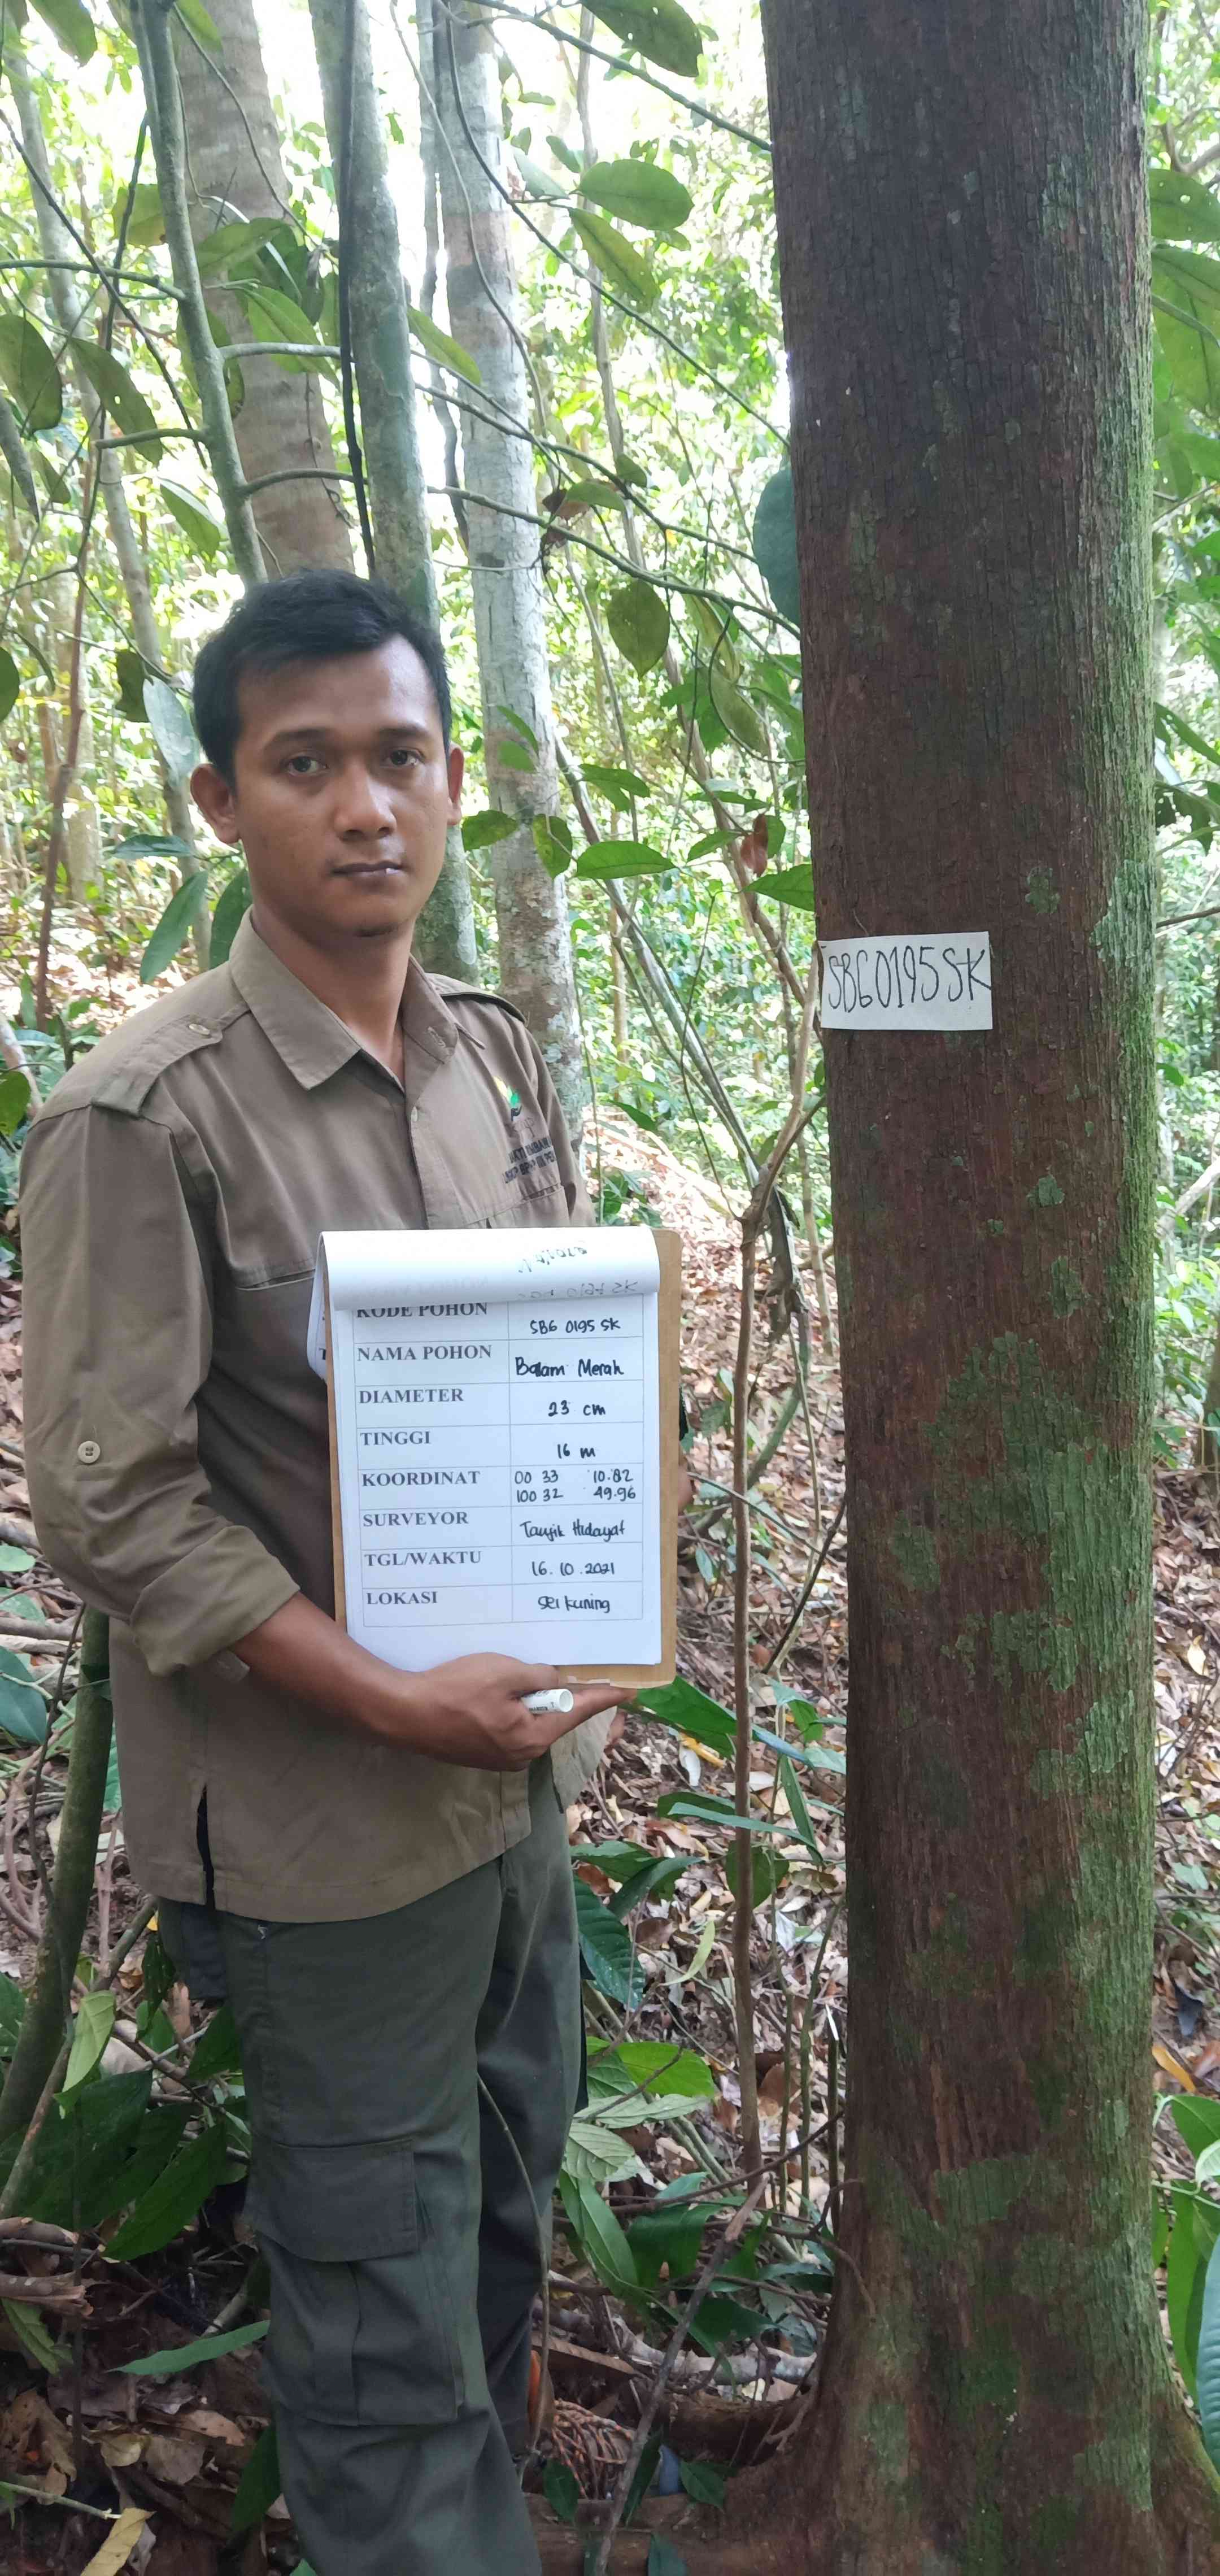 SBG 0195 SK
KODE POHON SBG 0195 SK
NAMA POHON Balam Merah
DIAMETER 23 cm
TINGGI 16 m
KOORDINAT 00 33 10.82
100 32 49.96
SURVEYOR Taufik Hidayat
TGL/WAKTU 16.10.2021
LOKASI Sei Kuning